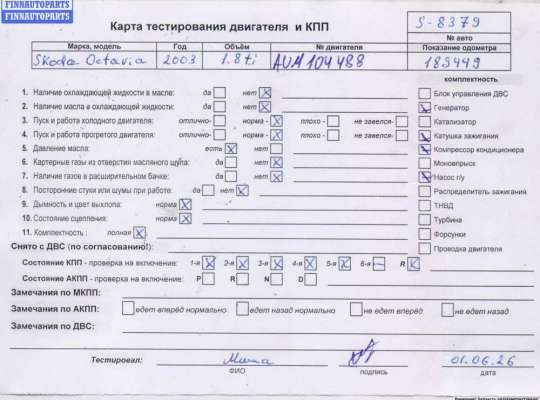 FINNAUTOPARTS
FINNAUTOPARTS
Карта тестирования двигателя и КПП
S-8379
№ авто
Марка, модель Год Объём № двигателя Показание одометра
Skoda Octavia 2003 1.8ti AUM104488 183449
комплектность
1. Наличие охлаждающей жидкости в масле: да нет X
Блок управления ДВС
2. Наличие масла в охлаждающей жидкости: да нет X
Генератор
3. Пуск и работа холодного двигателя: отлично- норма - X плохо - не завелся-
Катализатор
4. Пуск и работа прогретого двигателя: отлично- норма - X плохо - не завелся-
Катушка зажигания
5. Давление масла: есть X нет
Компрессор кондиционера
6. Картерные газы из отверстия масляного щупа: да нет X
Моновпрыск
7. Наличие газов в расширительном бачке: да нет X
Насос г/у
8. Посторонние стуки или шумы при работе: да нет X
Распределитель зажигания
9. Дымность и цвет выхлопа: норма X
ТНВД
10. Состояние сцепления: норма X
Турбина
11. Комплектность : полная X
Форсунки
Снято с ДВС (по согласованию!):
Проводка двигателя
Состояние КПП - проверка на включение: 1-я X 2-я X 3-я X 4-я X 5-я X 6-я — R X
Состояние АКПП - проверка на включение: P R N D
Замечания по МКПП:
Замечания по АКПП: едет вперёд нормально едет назад нормально не едет вперёд не едет назад
Замечания по ДВС:
Тестировал: Миша 01.06.26
ФИО подпись дата